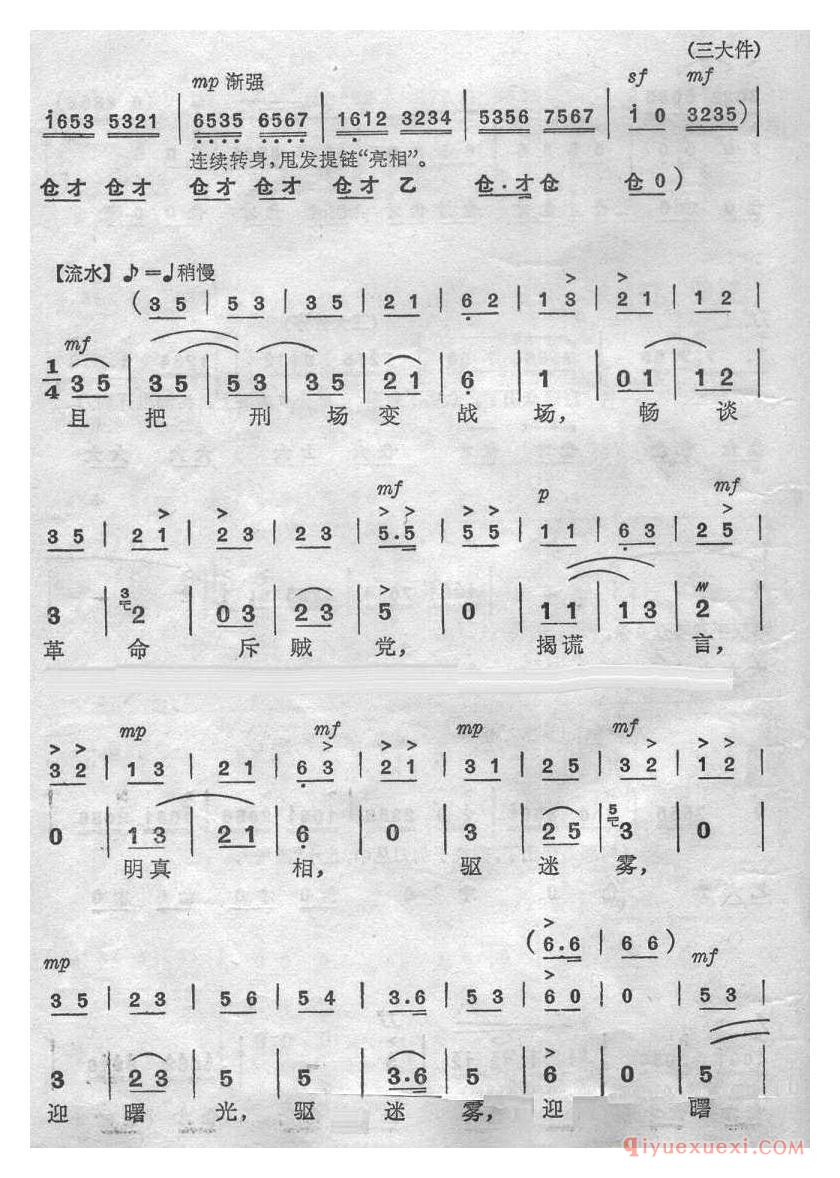 (三大件)
mp 渐强 sf mf
i653 5321 | 6535 6567 | 1612 3234 | 5356 7567 | i 0 3235) |
连续转身，甩发提链“亮相”。
仓才 仓才 仓才 仓才 仓才 乙 仓.才仓 仓 0)
【流水】♪=♩稍慢
(3 5 | 5 3 | 3 5 | 2 1 | 6 2 | 1 3 | 2 1 | 1 2 |
mf
1/4 3 5 | 3 5 | 5 3 | 3 5 | 2 1 | 6 | 1 | 0 1 | 1 2 |
且 把 刑 场 变 战 场， 畅 谈
mf p mf
3 5 | 2 1 | 2 3 | 2 3 | 5.5 | 5 5 | 1 1 | 6 3 | 2 5 |
3 | 3 2 | 0 3 | 2 3 | 5 | 0 | 1 1 | 1 3 | 2 |
革 命 斥 贼 党， 揭谎 言，
mp mf mp mf
3 2 | 1 3 | 2 1 | 6 3 | 2 1 | 3 1 | 2 5 | 3 2 | 1 2 |
0 | 1 3 | 2 1 | 6 | 0 | 3 | 2 5 | 5 3 | 0 |
明真 相， 驱 迷 雾，
(6.6 | 6 6)
mp mf
3 5 | 2 3 | 5 6 | 5 4 | 3.6 | 5 3 | 6 0 | 0 | 5 3 |
3 | 2 3 | 5 | 5 | 3.6 | 5 | 6 | 0 | 5 |
迎 曙 光，驱 迷 雾，迎 曙
qiyuexuexi.com